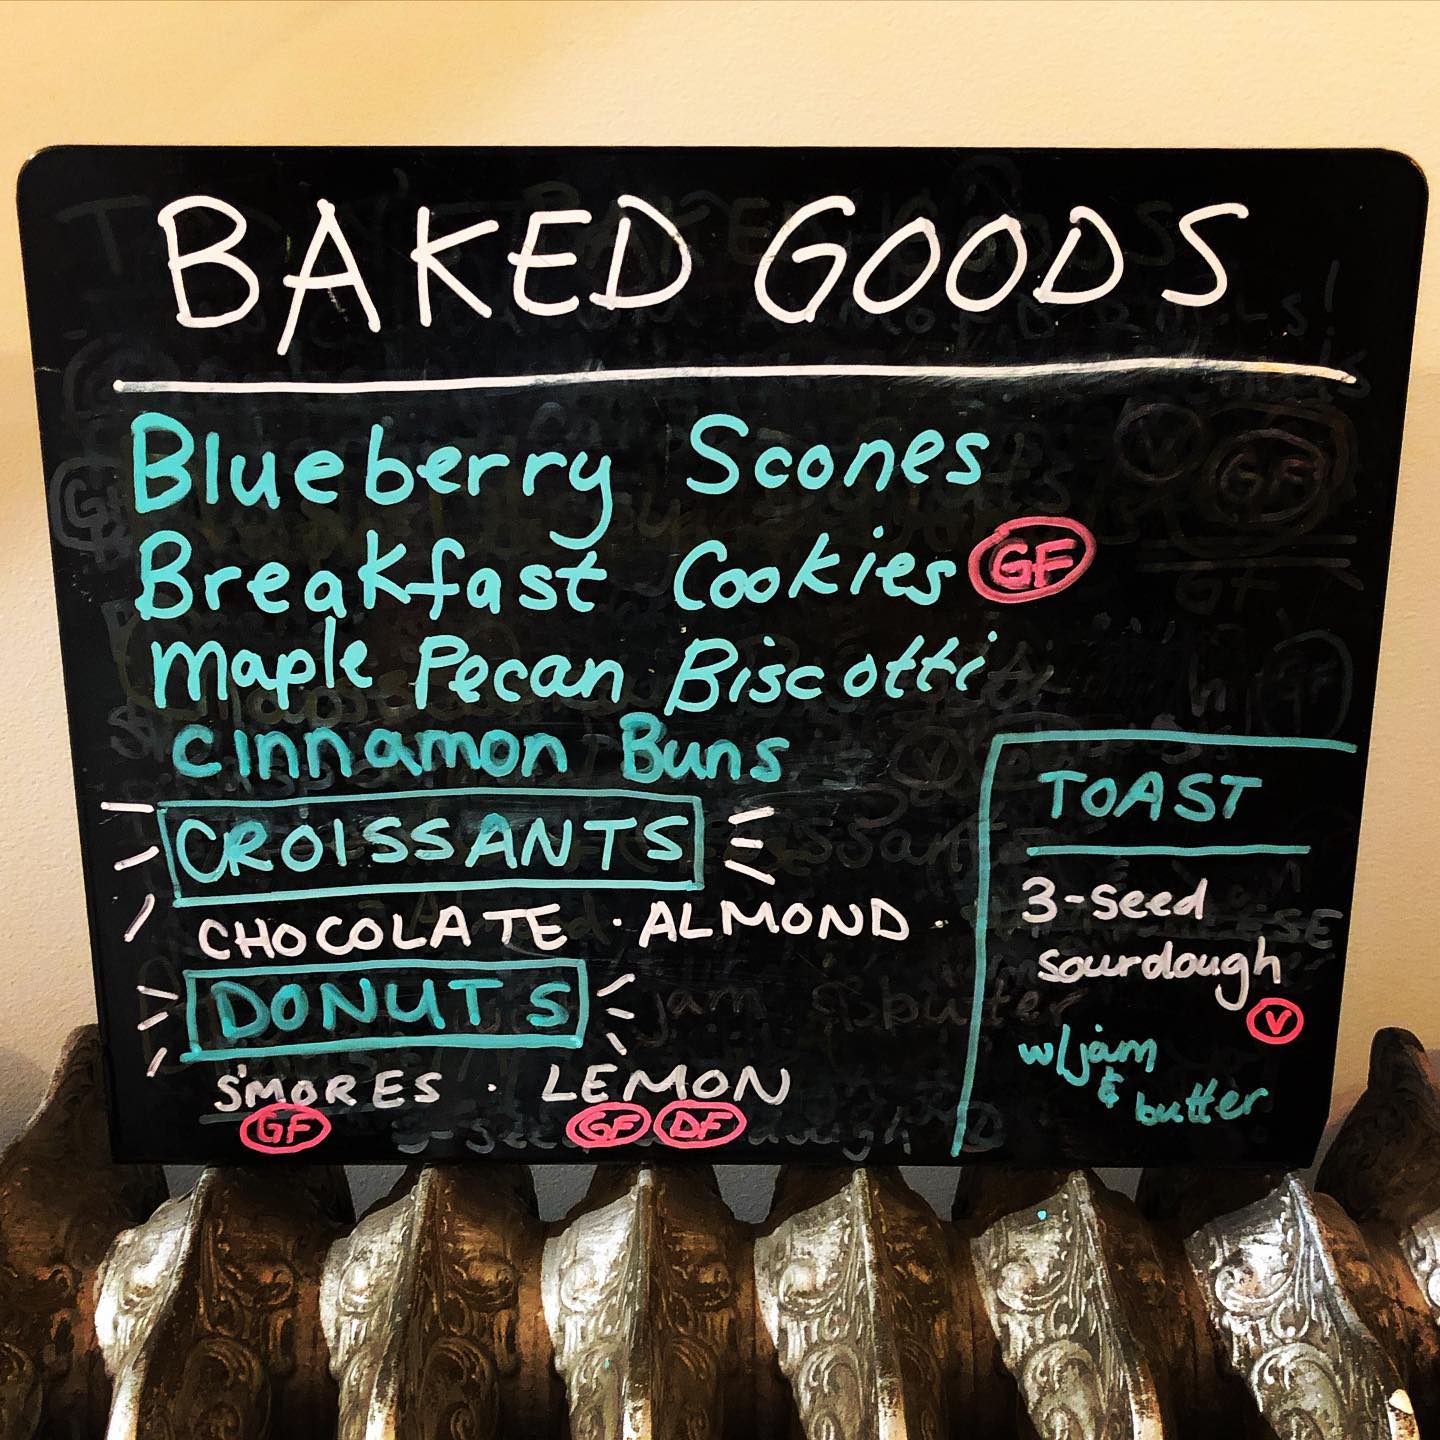 BAKED GOODS
Blueberry Scones
Breakfast Cookies GF
Maple Pecan Biscotti
Cinnamon Buns
CROISSANTS
CHOCOLATE · ALMOND
DONUTS
S'MORES · LEMON
GF GF DF
TOAST
3-seed
sourdough
V
w/jam
&
butter